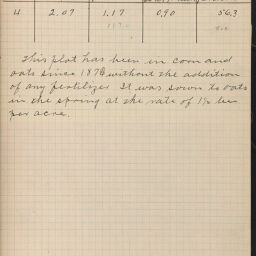 4 2.07 1.17 0.90 56.3
This plot has been in corn and
oats since 1876 without the addition
of any fertilizer. It was sown to oats
in the spring at the rate of 1½ bu
per acre.